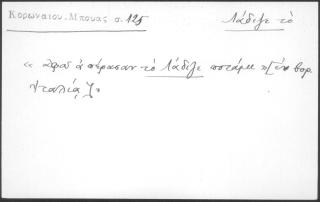 Κορωναίου. Μπουας σ. 125 Λάδιζε τὸ
« αφοῦ ἀπέρασαν τὸ Λάδιζε ποτάμι » [ἐν βορ.
Ἰταλίᾳ]»